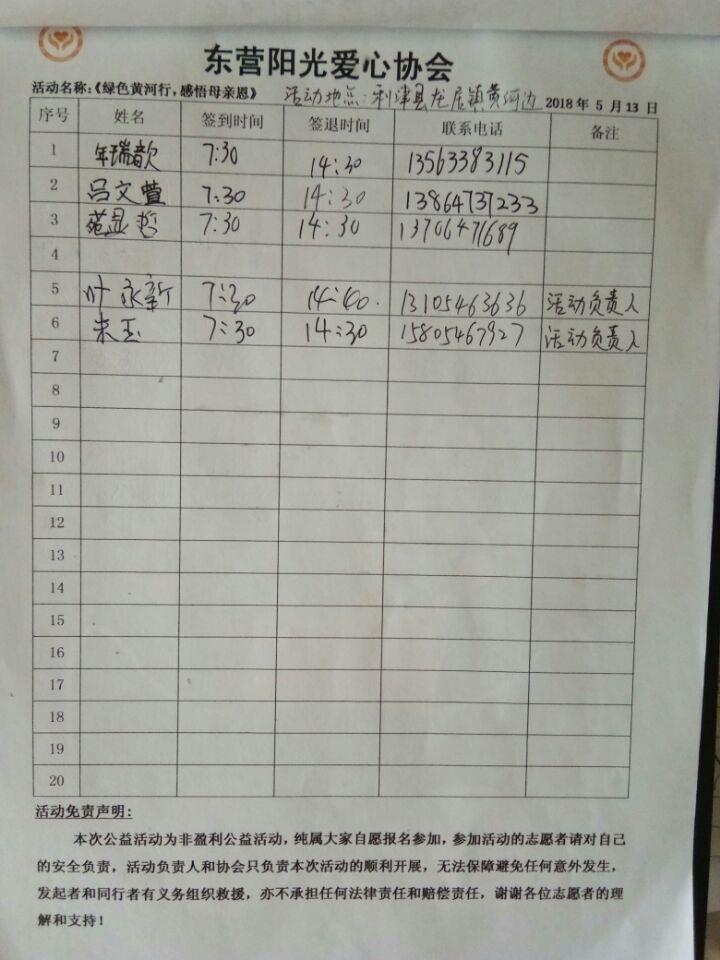 东营阳光爱心协会
活动名称：《绿色黄河行，感悟母亲恩》 活动地点：利津县龙居镇黄河边 2018年5月13日
序号 姓名 签到时间 签退时间 联系电话 备注
1 7:30 14:30 13563383115
2 吕文萱 7:30 14:30 13864737233
3 苑显哲 7:30 14:30 13706471689
4
5 叶永新 7:30 14:40. 13105463636 活动负责人
6 朱玉 7:30 14:30 15805467927 活动负责人
7
8
9
10
11
12
13
14
15
16
17
18
19
20
活动免责声明：
本次公益活动为非盈利公益活动，纯属大家自愿报名参加，参加活动的志愿者请对自己
的安全负责，活动负责人和协会只负责本次活动的顺利开展，无法保障避免任何意外发生，
发起者和同行者有义务组织救援，亦不承担任何法律责任和赔偿责任，谢谢各位志愿者的理
解和支持！